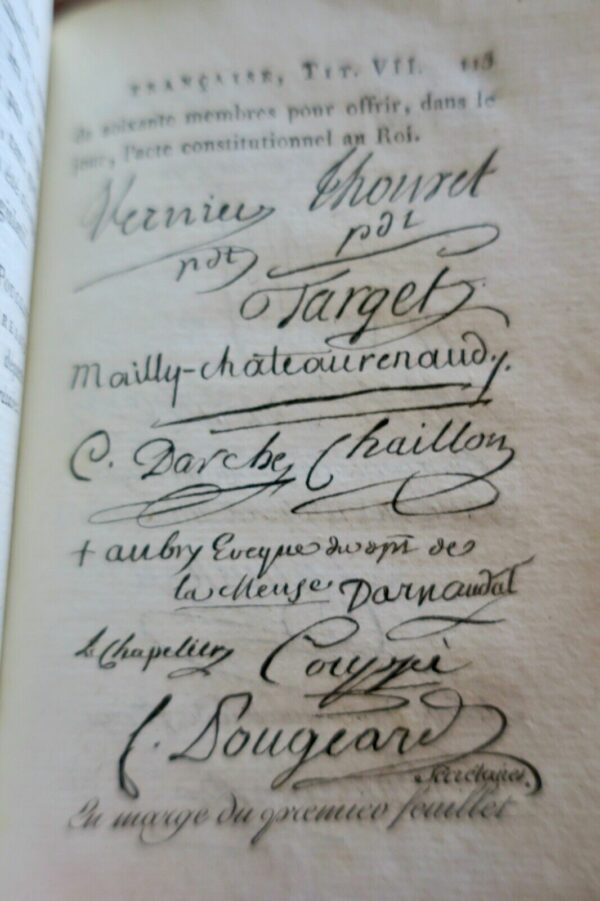 FRANÇAISE, TIT. VII. 113
de soixante membres pour offrir, dans le
jour, l'acte constitutionnel au Roi.
Vernier Thouret
pdt pdt
Target
Mailly-châteaurenaud.
C. Darche Chaillon
+ aubry Eveque du dpt de
la Meuse Darnaudat
Le Chapelier Couppé
C. Bougeard
Secrétaires
En marge du premier feuillet